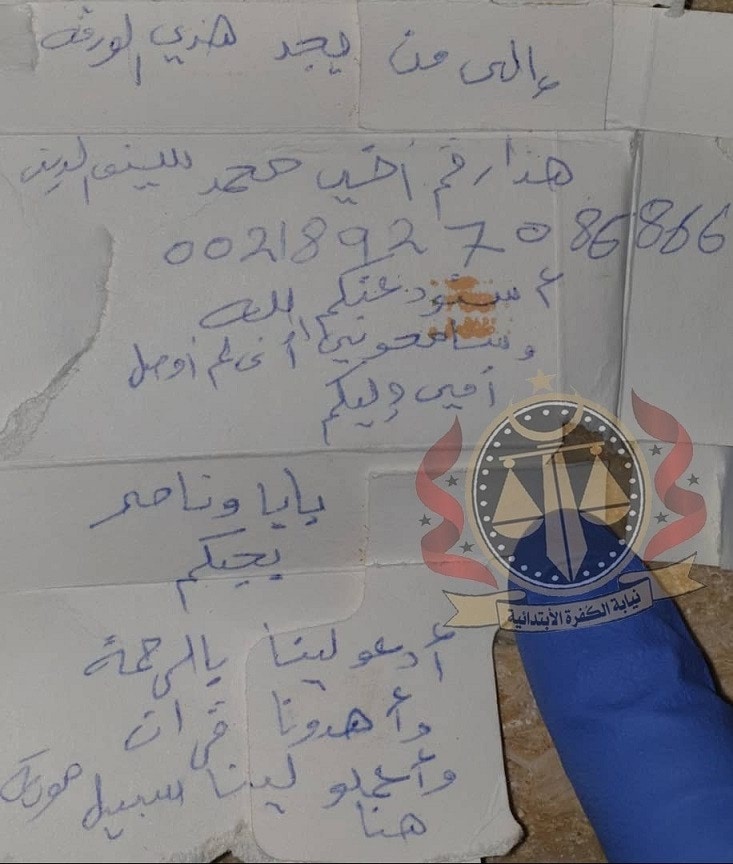 إلى من يجد هذي الورقه
هذا رقم أخي محمد سيف الدين
00218927086866
استودعتكم الله
وسامحوني أني لم أوصل
أمي إليكم
بابا وناصر
يحبكم
أدعو لينا بالرحمة
وأهدونا قرآن
وأعملو لينا سبيل
هنا
نيابة الكفرة الأبتدائية